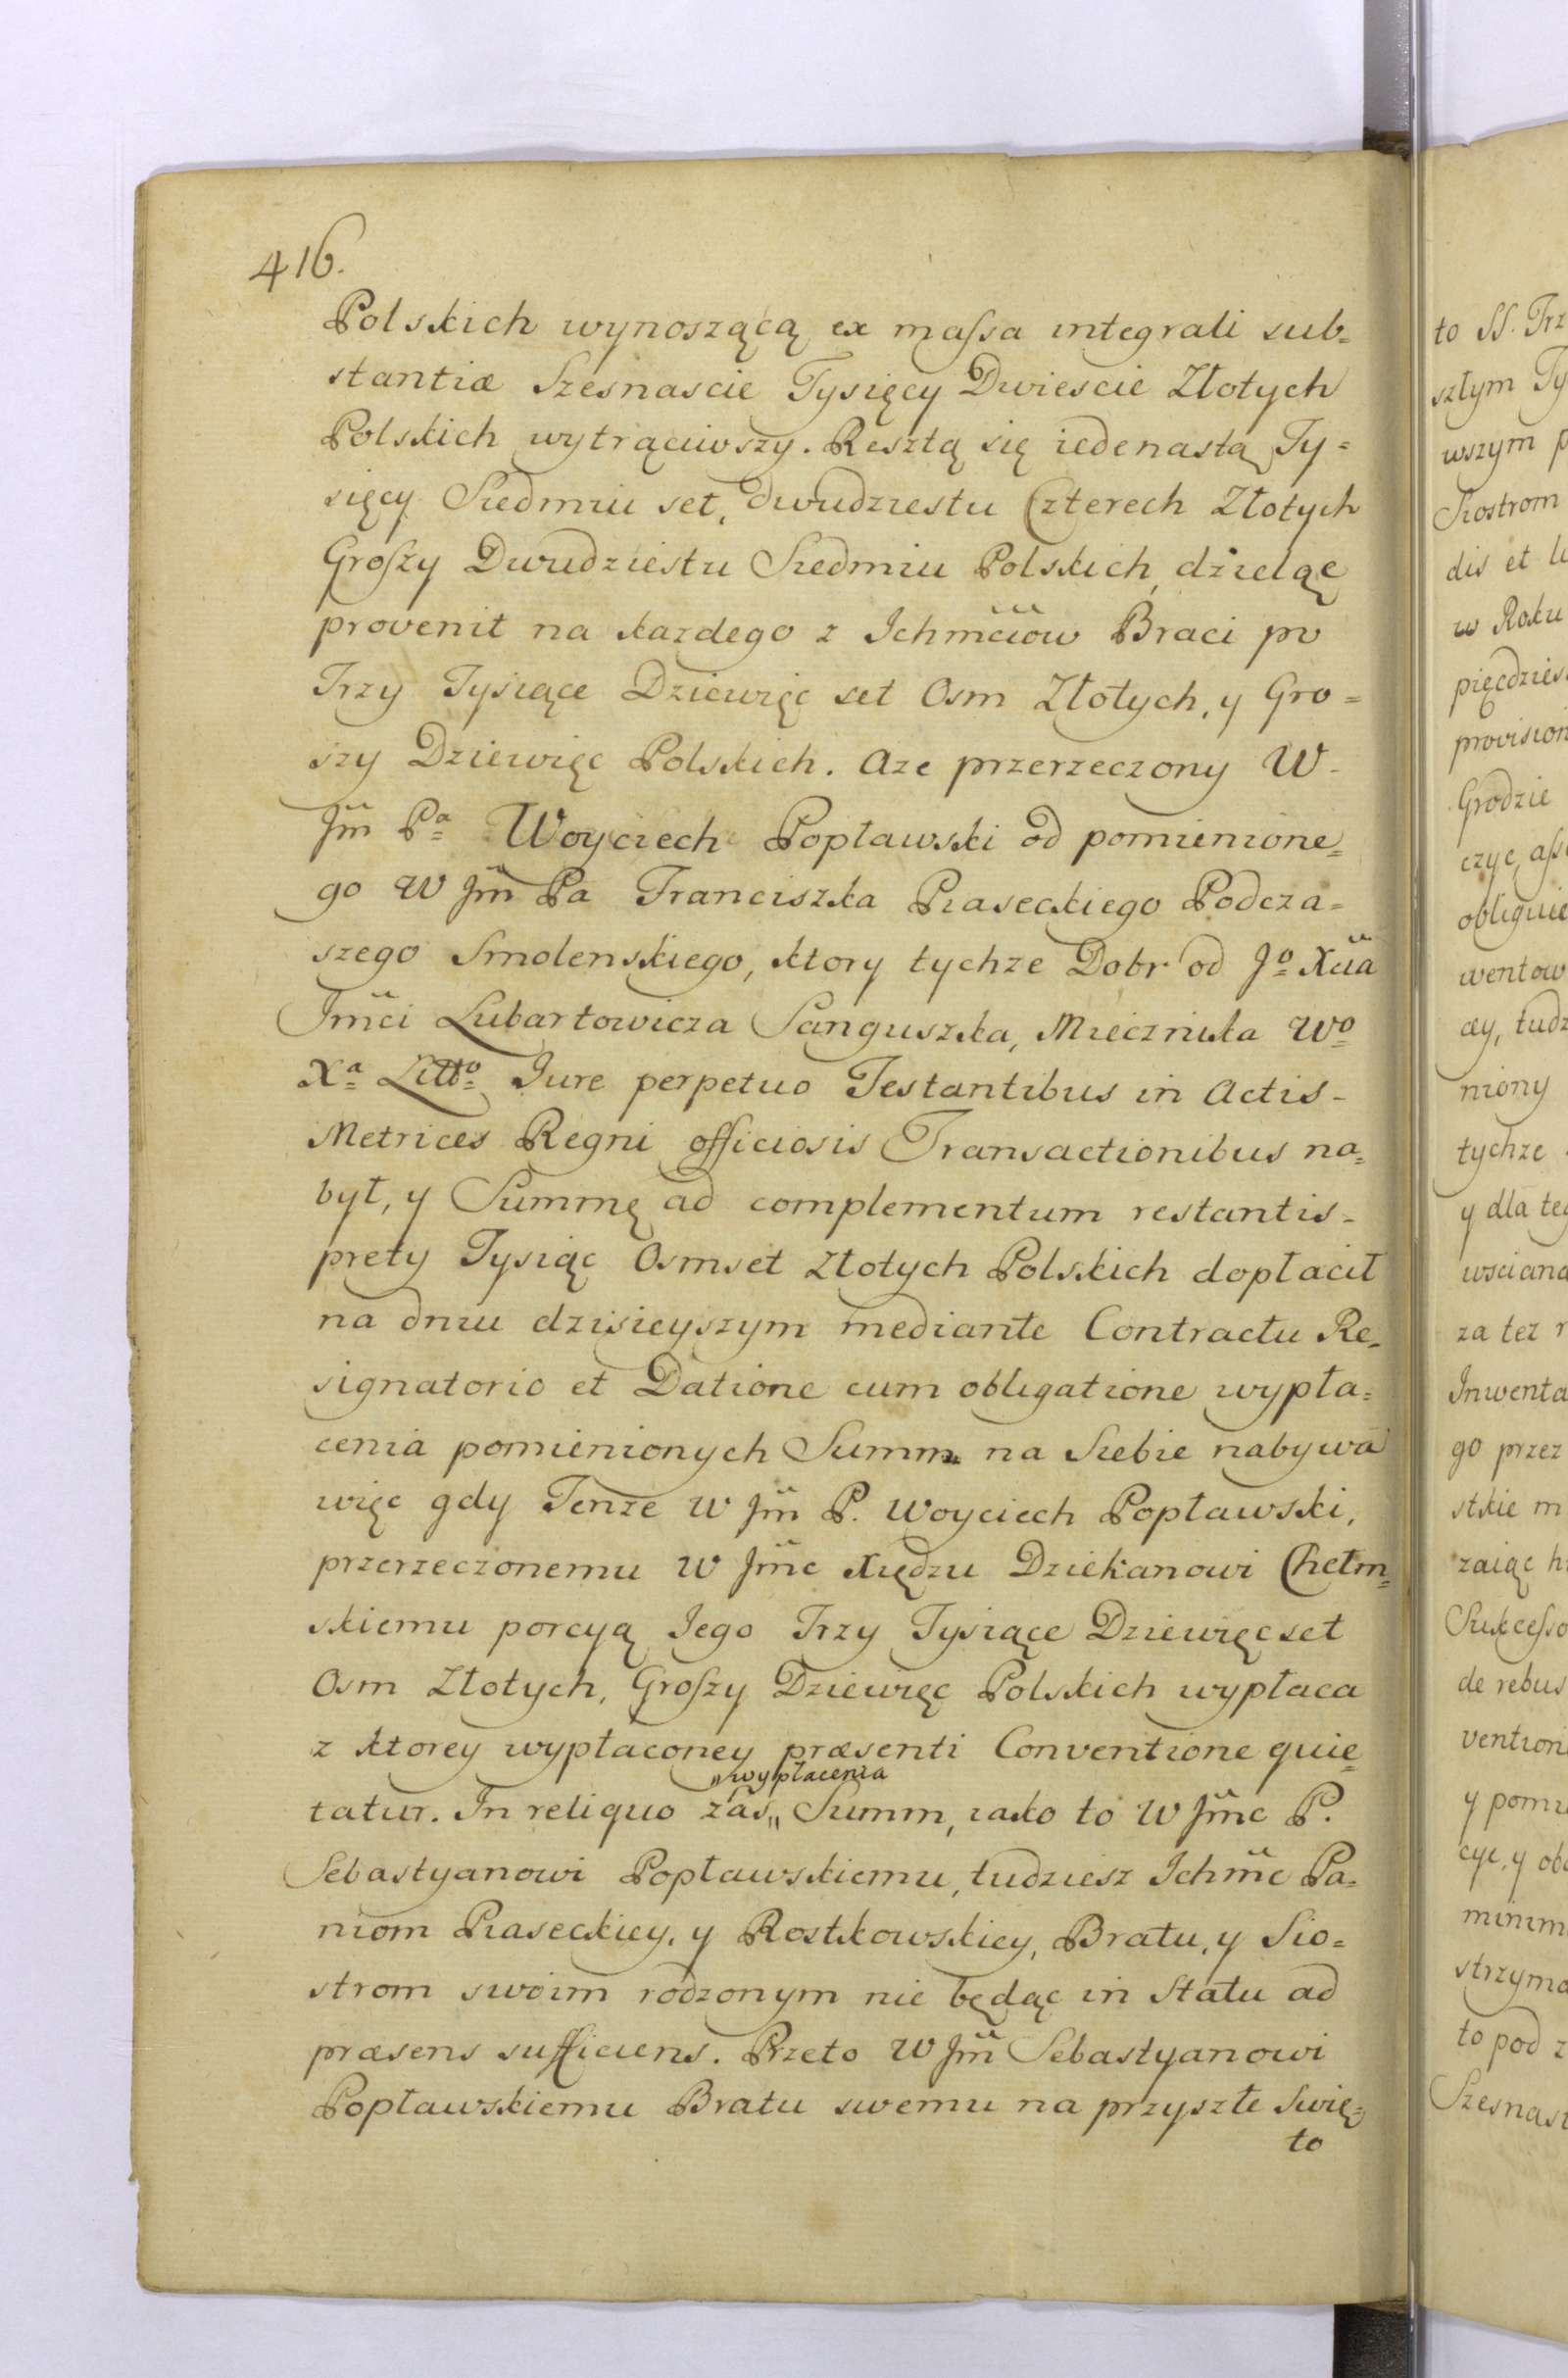 416.
Polskich wynoszącą ex massa integrali sub=
stantiæ Szesnascie Tysięcy Dwiescie Złotych
Polskich wytrąciwszy. Resztą się iedenastą Ty=
sięcy Siedmiu set, dwudziestu Czterech Złotych
Groszy Dwudziestu Siedmiu Polskich, dzieląc
provenit na kazdego z Ichmciow Braci po
Trzy Tysiące Dziewięc set Osm Złotych, y Gro=
szy Dziewięc Polskich. Aze przerzeczony W.
Jm Pa Woyciech Popławski od pomienione=
go W Jm Pa Franciszka Piaseckiego Podcza=
szego Smolenskiego, ktory tychze Dobr od Jo Xcia
Jmci Lubartowicza Sanguszka, Miecznika Wo
Xa Litto Jure perpetuo Testantibus in Actis
Metrices Regni officiosis Transactionibus na=
był, y Summę ad complementum restantis
prety Tysiąc Osmset Złotych Polskich dopłacił
na dniu dzisieyszym mediante Contractu Re=
signatorio et Datione cum obligatione wypła=
cenia pomienionych Summ na Siebie nabywa
więc gdy Tenze W Jm P. Woyciech Popławski,
przerzeczonemu W Jmc Xiędzu Dziekanowi Chełm=
skiemu porcyą Jego Trzy Tysiące Dziewięcset
Osm Złotych, Groszy Dziewięc Polskich wypłaca
z ktorey wypłaconey præsenti Conventione quie=
„wypłacenia
tatur. In reliquo zas„ Summ, iako to W Jmc P.
Sebastyanowi Popławskiemu, tudziesz Ichmc Pa=
niom Piaseckiey, y Rostkowskiey, Bratu, y Sio=
strom swoim rodzonym nie będąc in Statu ad
præsens sufficiens. Przeto W Jm Sebastyanowi
Popławskiemu Bratu swemu na przyszłe Swię=
to
to SS. Trz
szłym Ty
wszym p
Siostrom
dis et le
w Roku
pięcdzies
provision
Grodzie
czyc, ass
obliguie
wentow
ey, tudz
niony
tychze
y dla te
wsciana
za tez r
Inwenta
go przez
stkie m
zaiąc h
Sukcesso
de rebus
ventioni
y pomi
cyc, y ob
minim
strzyma
to pod z
Szesnast